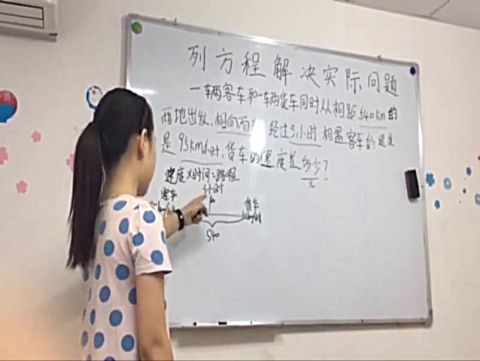 列方程解决实际问题
一辆客车和一辆货车同时从相距540km的
两地出发,相向而行,经过3小时相遇客车的速度
是95km/h时,货车的速度是多少?
速度×时间=路程
客车 3小时 货车
540